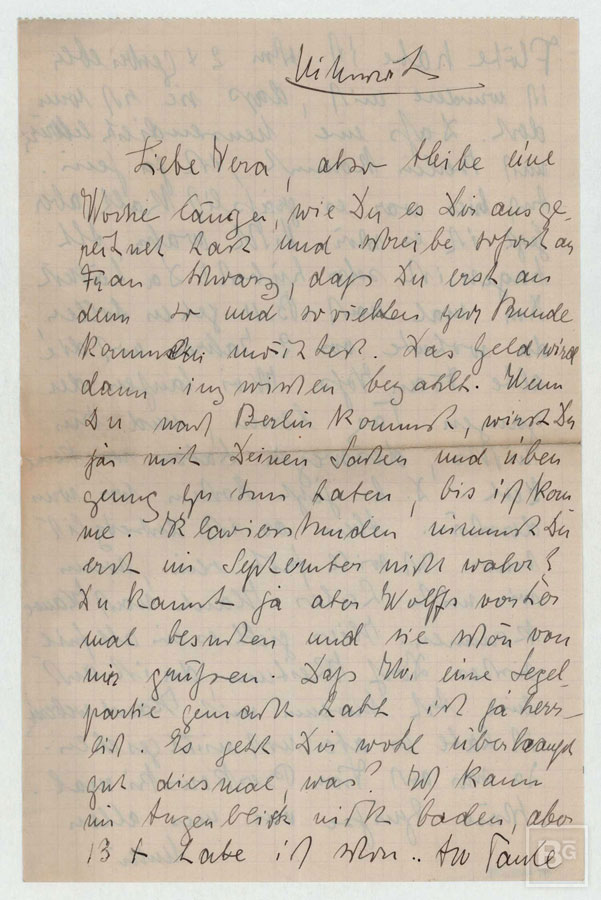 Mittwoch
Liebe Vera, also bleibe eine
Woche länger, wie Du es Dir ausge-
rechnet hast und schreibe sofort an
Frau Schwarz, daß Du erst an
dem so und sovielten zur Stunde
kommen möchtest. Das Geld wird
dann inzwischen bezahlt. Wenn
Du nach Berlin kommst, wirst Du
ja mit Deinen Sachen und üben
genug zu tun haben, bis ich kom
me. Klavierstunden nimmst Du
erst im September nicht wahr?
Du kannst ja aber Wolffs vorher
mal besuchen und sie schön von
mir grüßen. Daß Ihr eine Segel-
partie gemacht habt ist ja herr-
lich. Es geht Dir wohl überhaupt
gut diesmal, was? Ich kann
im Augenblick nicht baden, aber
13 x habe ich schon.. An Tante
BG